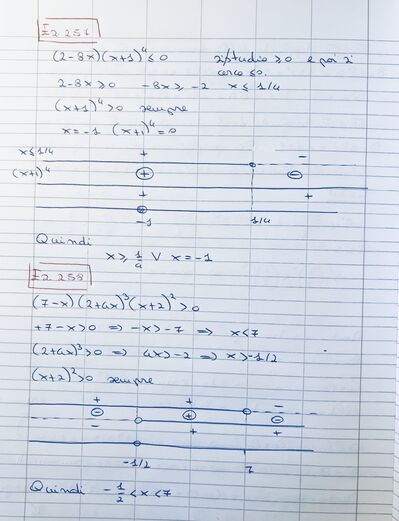 Ez 257
(2-8x)(x+1)⁴≤0 si studia >0 e poi si
cerca ≤0.
2-8x≥0 -8x≥-2 x≤1/4
(x+1)⁴>0 sempre
x=-1 (x+1)⁴=0
+ -
x≤1/4
(x+1)⁴ + -
+ +
-1 1/4
Quindi
x≥1/4 V x=-1
Ez 258
(7-x)(2+4x)³(x+2)²>0
+7-x>0 => -x>-7 => x<7
(2+4x)³>0 => 4x>-2 => x>-1/2
(x+2)²>0 sempre
+ + -
- + -
- + +
-1/2 7
Quindi -1/2<x<7